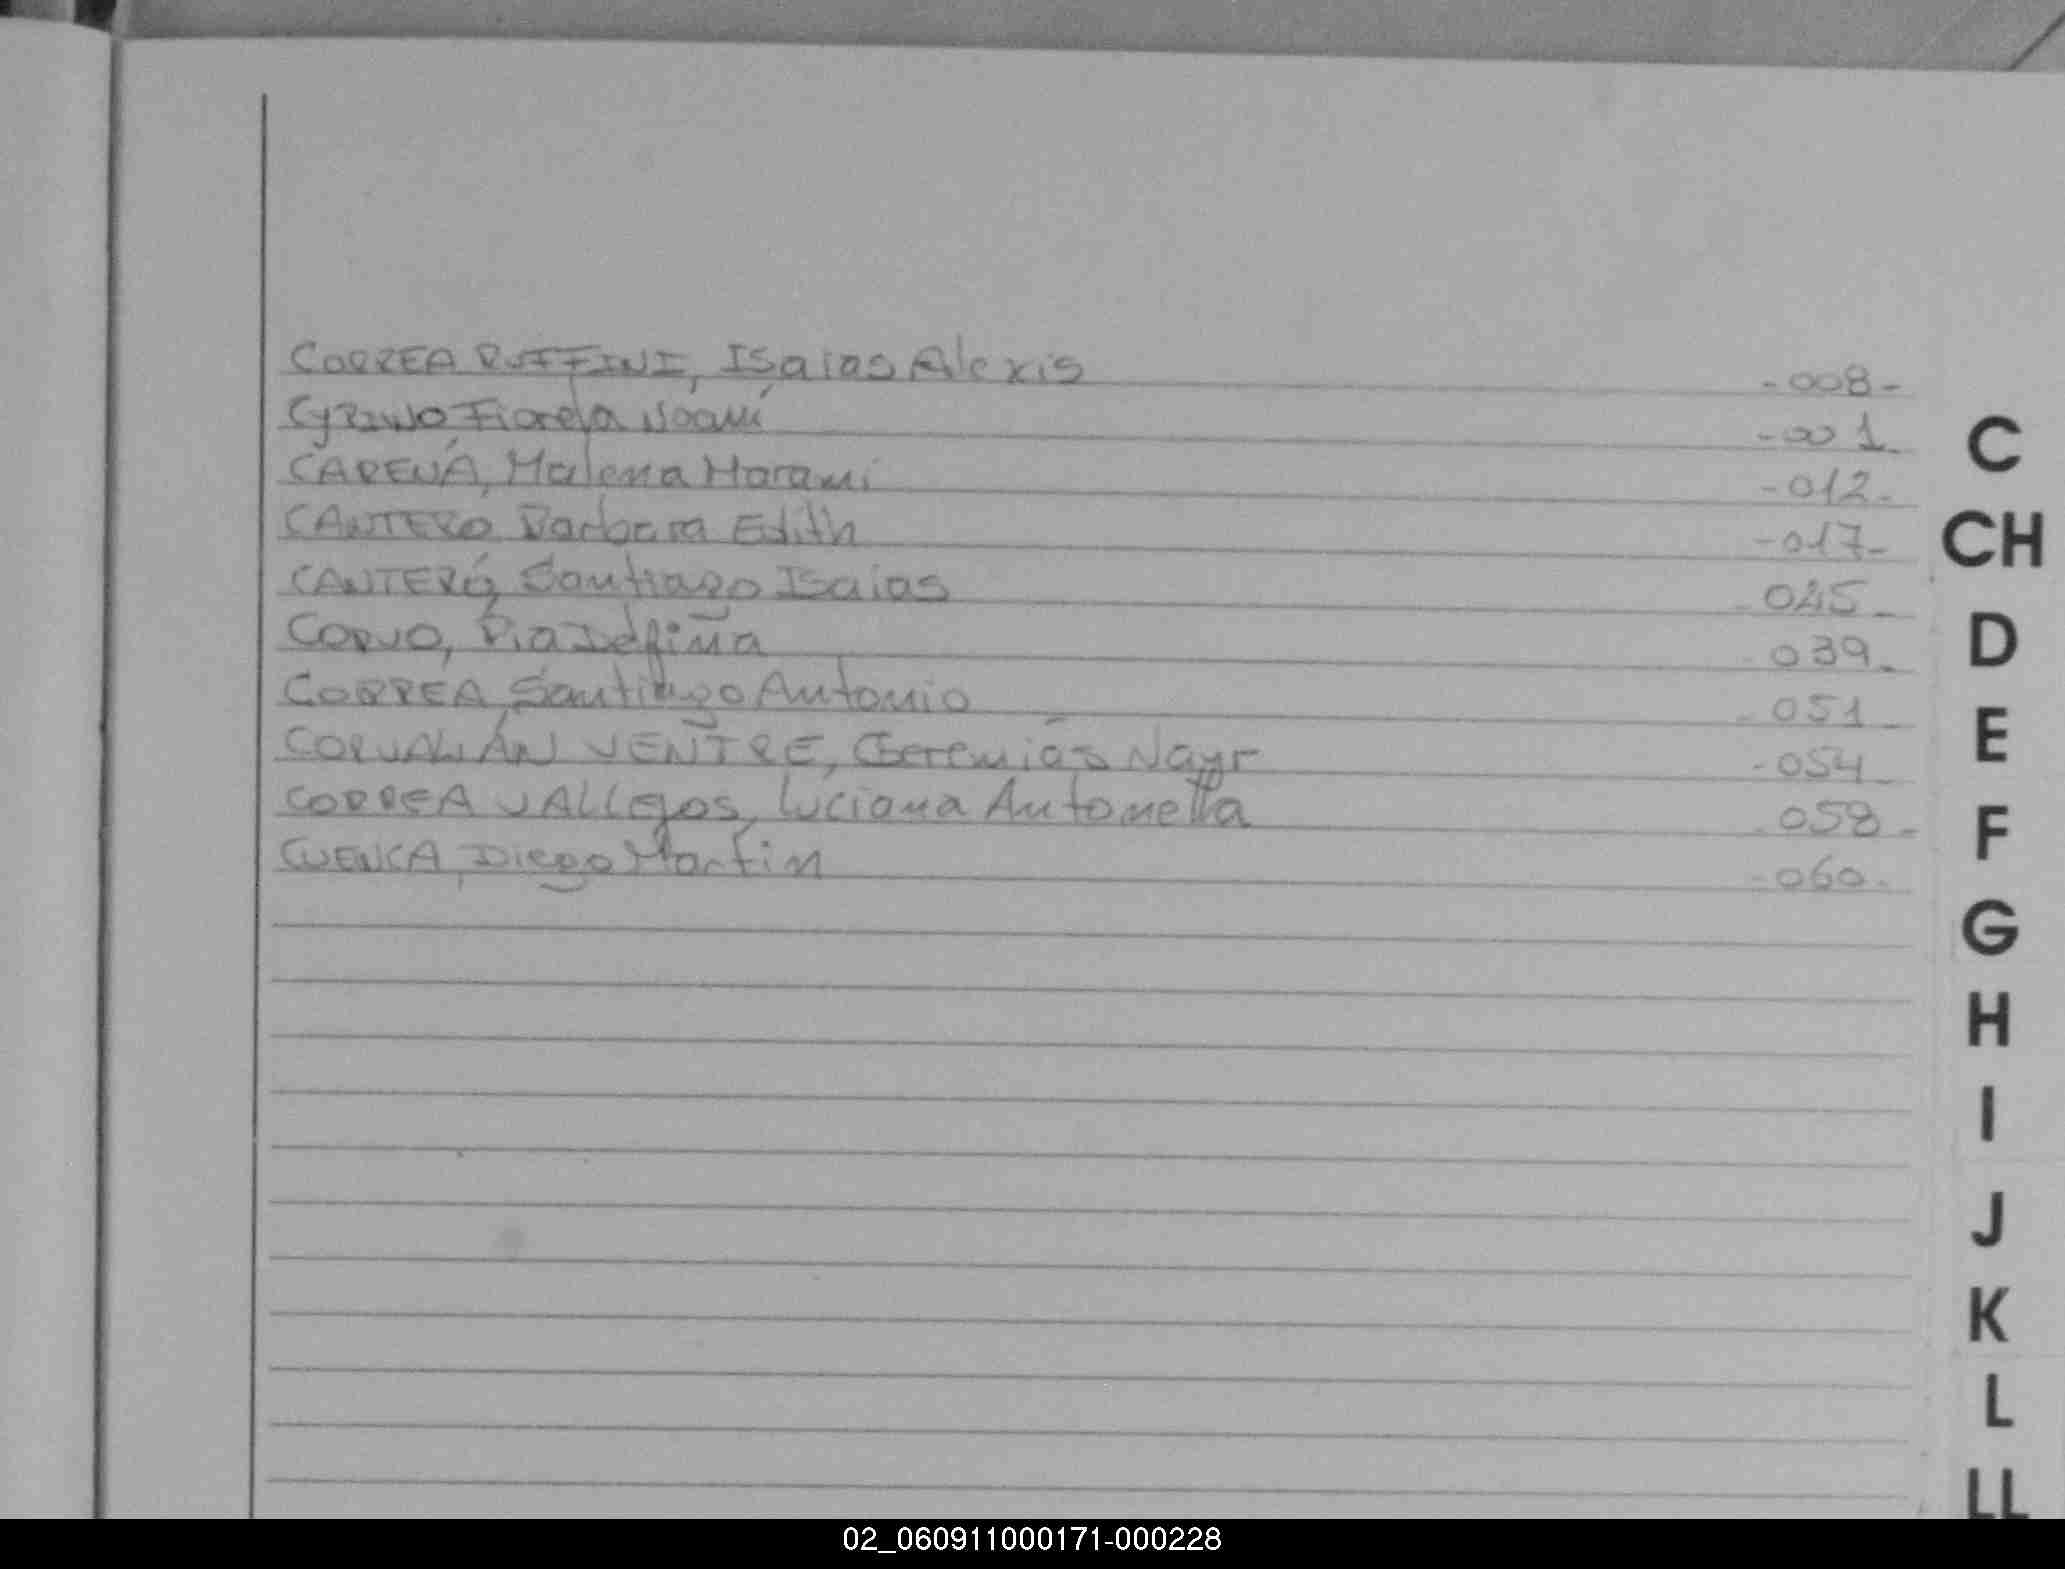 CORREA RUFFINI, Isaias Alexis -008-
Fiorela Noamí -001-
Malena -012-
CANTERO, Barbara Edith -017-
CANTERO, Santiago Isaias
CORVO, Pia Delfina 039-
CORREA, Santiago Antonio -051-
CORVALÁN VENTRE, Geremías Nayr -054-
CORREA VALLEJOS, Luciana Antonella 058-
CUENCA, Diego Martin -060-
C
CH
D
E
F
G
H
I
J
K
L
LL
02_060911000171-000228